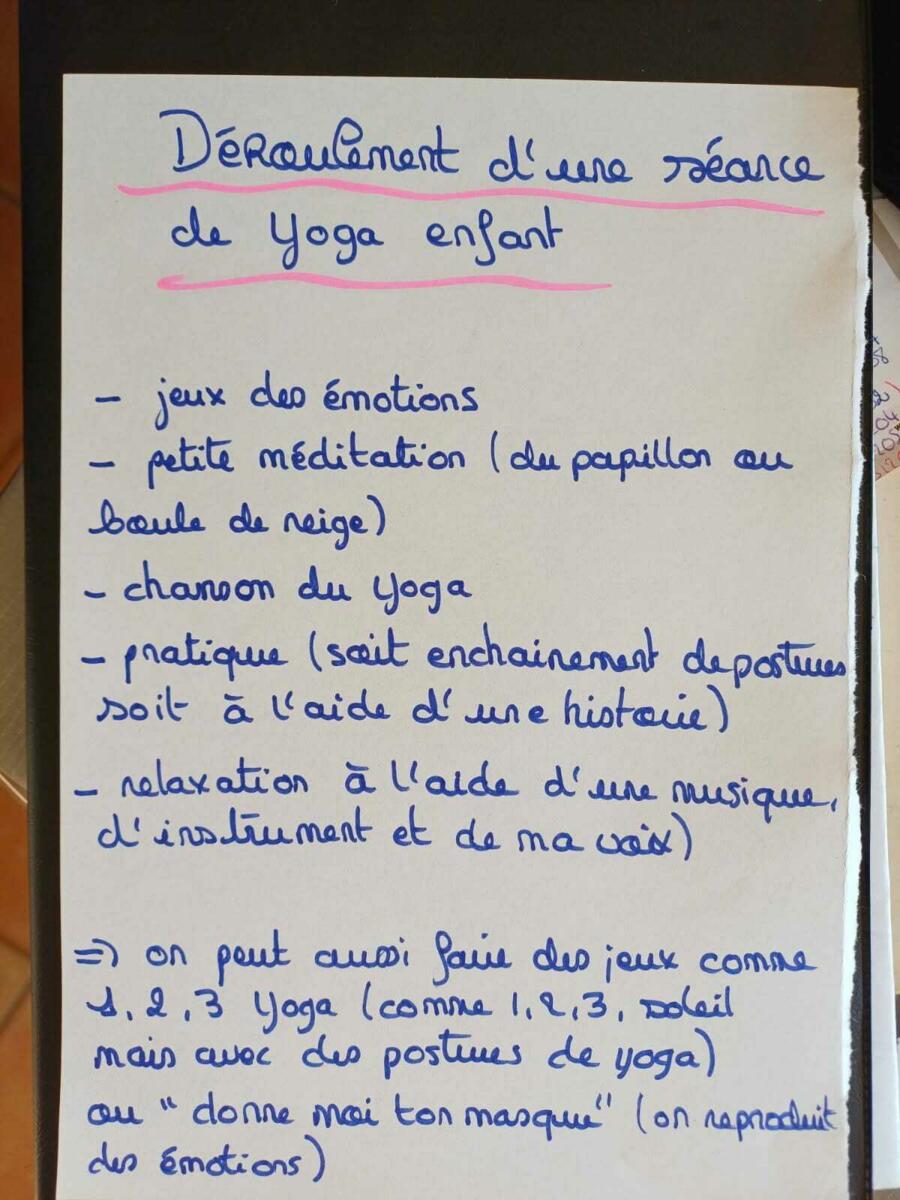 Déroulement d'une séance
de Yoga enfant
- jeux des émotions
- petite méditation (du papillon ou
boule de neige)
- chanson du yoga
- pratique (soit enchainement de postures
soit à l'aide d'une histoire)
- relaxation à l'aide d'une musique,
d'instrument et de ma voix)
=> on peut aussi faire des jeux comme
1, 2, 3 Yoga (comme 1, 2, 3, soleil
mais avec des postures de yoga)
ou "donne moi ton masque" (on reproduit
des émotions)